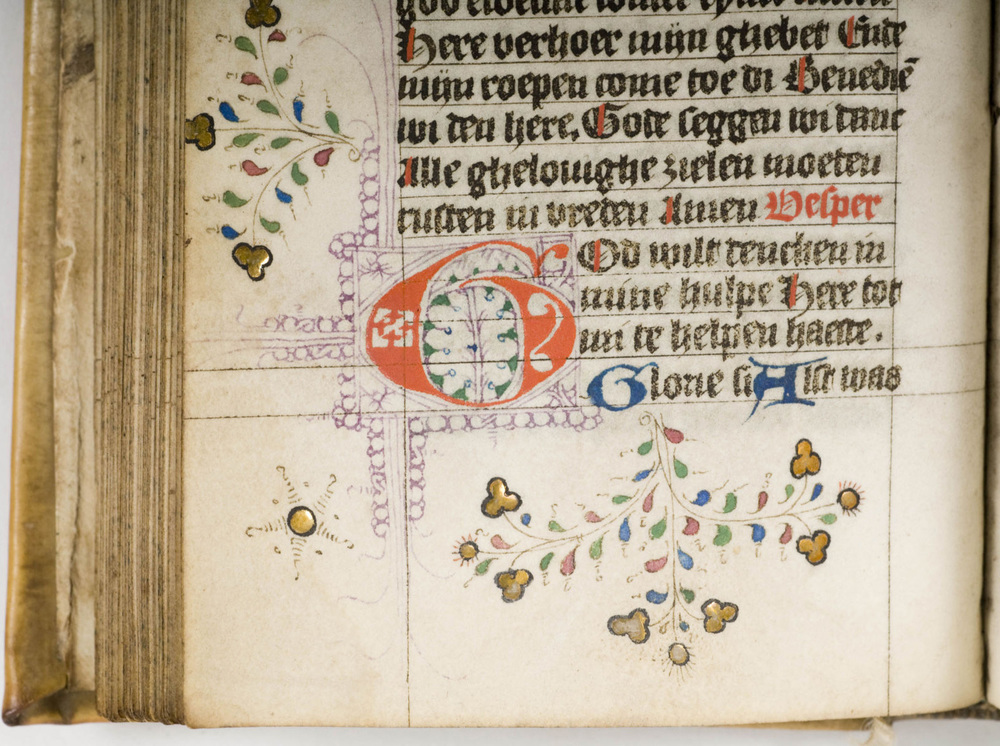 Here verhoer mijn ghebet Ende
mijn roepen come toe di Benediē
wi den here. Gode seggen wi danc
Alle ghelouighe zielen moeten
rusten in vreden Amen Vesper
GOd wilt dencken in
mine hulpe Here tot
mi te helpen haeste.
Glorie si Alst was